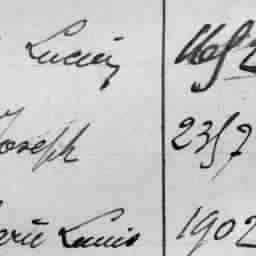 Lucien
Joseph 2357
Louis 1902